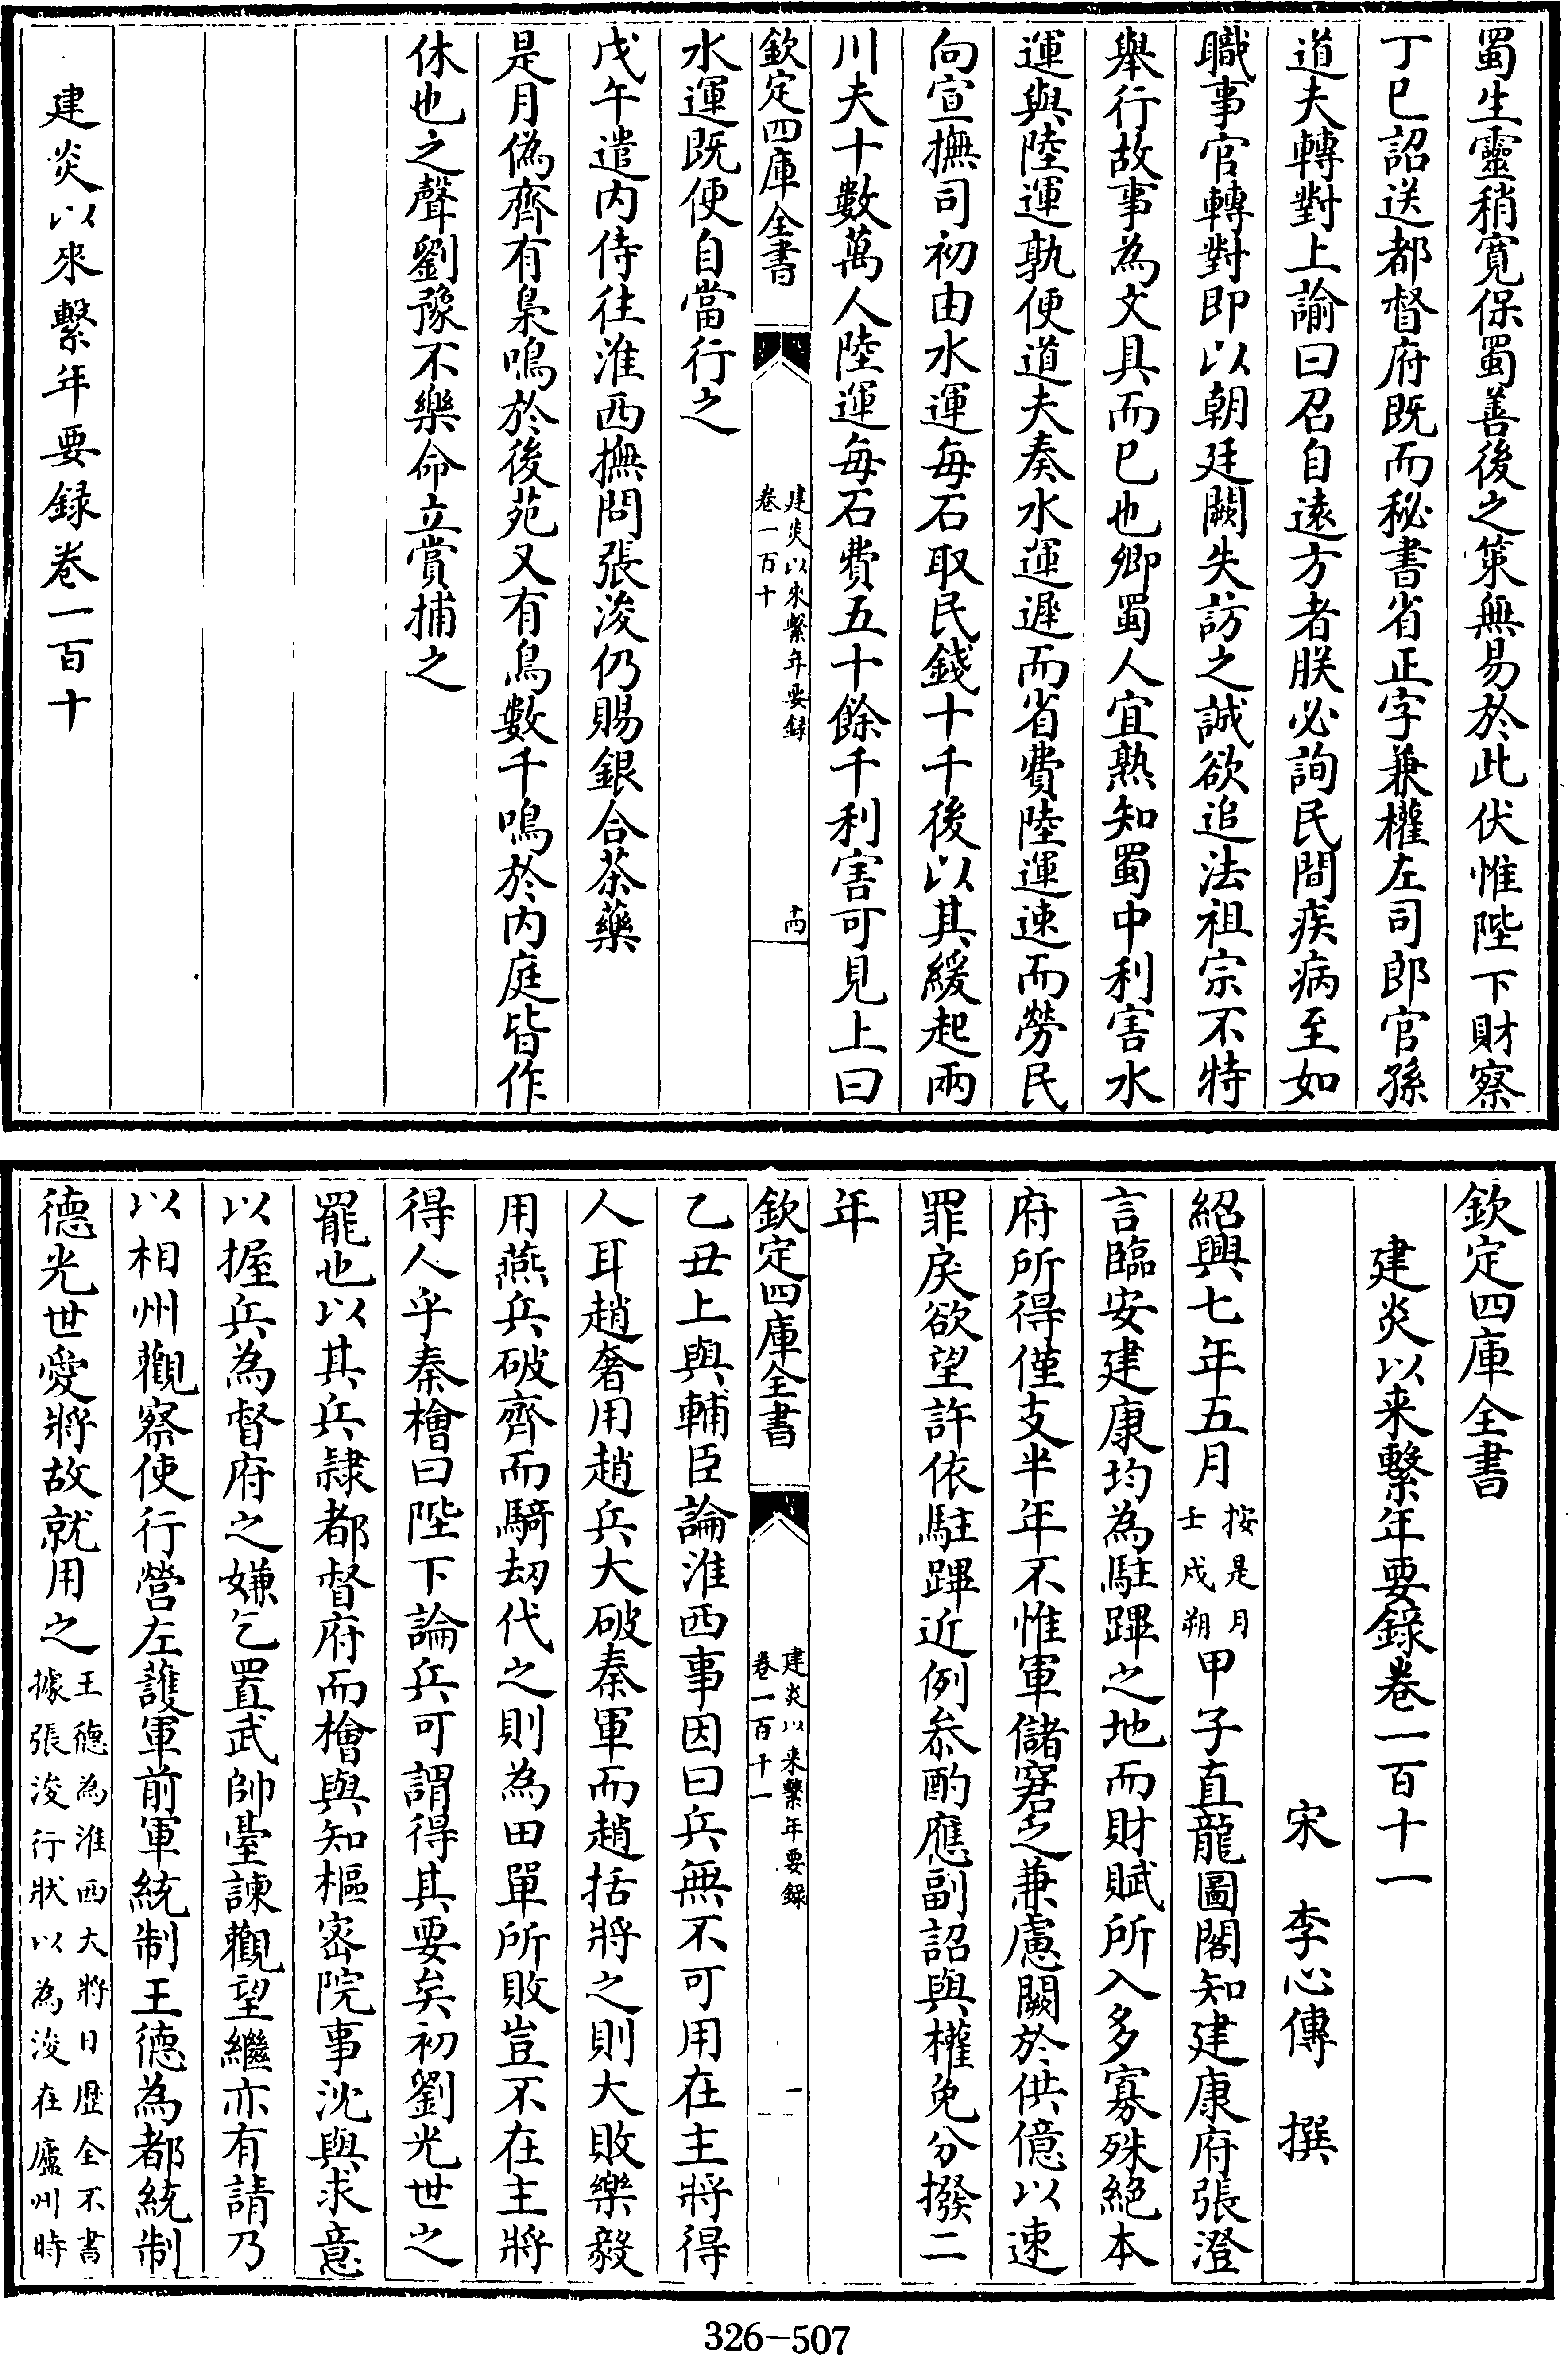 蜀生靈稍寛保蜀善後之策無易於此伏惟陛下財察
丁巳詔送都督府既而秘書省正字兼權左司郎官孫
道夫轉對上諭曰召自逺方者朕必詢民間疾病至如
職事官轉對即以朝廷闕失訪之誠欲追法祖宗不特
舉行故事為文具而已也卿蜀人宜熟知蜀中利害水
運與陸運孰便道夫奏水運遲而省費陸運速而勞民
向宣撫司初由水運每石取民錢十千後以其緩起兩
川夫十數萬人陸運每石費五十餘千利害可見上曰
欽定四庫全書
建炎以來繫年要録
卷一百十
十四
水運既便自當行之
戊午遣内侍往淮西撫問張浚仍賜銀合茶藥
是月偽齊有梟鳴於後苑又有鳥數千鳴於内庭皆作
休也之聲劉豫不樂命立賞捕之
建炎以來繫年要録卷一百十
欽定四庫全書
建炎以来繫年要錄卷一百十一
宋 李心傳 撰
紹興七年五月
按是月
壬戌朔
甲子直龍圖閣知建康府張澄
言臨安建康均為駐蹕之地而財賦所入多寡殊絶本
府所得僅支半年不惟軍儲窘乏兼慮闕於供億以速
罪戾欲望許依駐蹕近例叅酌應副詔與權免分撥二
年
欽定四庫全書
建炎以来繫年要録
卷一百十一
一
乙丑上與輔臣論淮西事因曰兵無不可用在主將得
人耳趙奢用趙兵大破秦軍而趙括將之則大敗樂毅
用燕兵破齊而騎刼代之則為田單所敗豈不在主將
得人乎秦檜曰陛下論兵可謂得其要矣初劉光世之
罷也以其兵隷都督府而檜與知樞宻院事沈與求意
以握兵為督府之嫌乞置武帥臺諫觀望繼亦有請乃
以相州觀察使行營左護軍前軍統制王德為都統制
德光世愛將故就用之
王德為淮西大將日歴全不書
據張浚行狀以為浚在廬州時
326-507